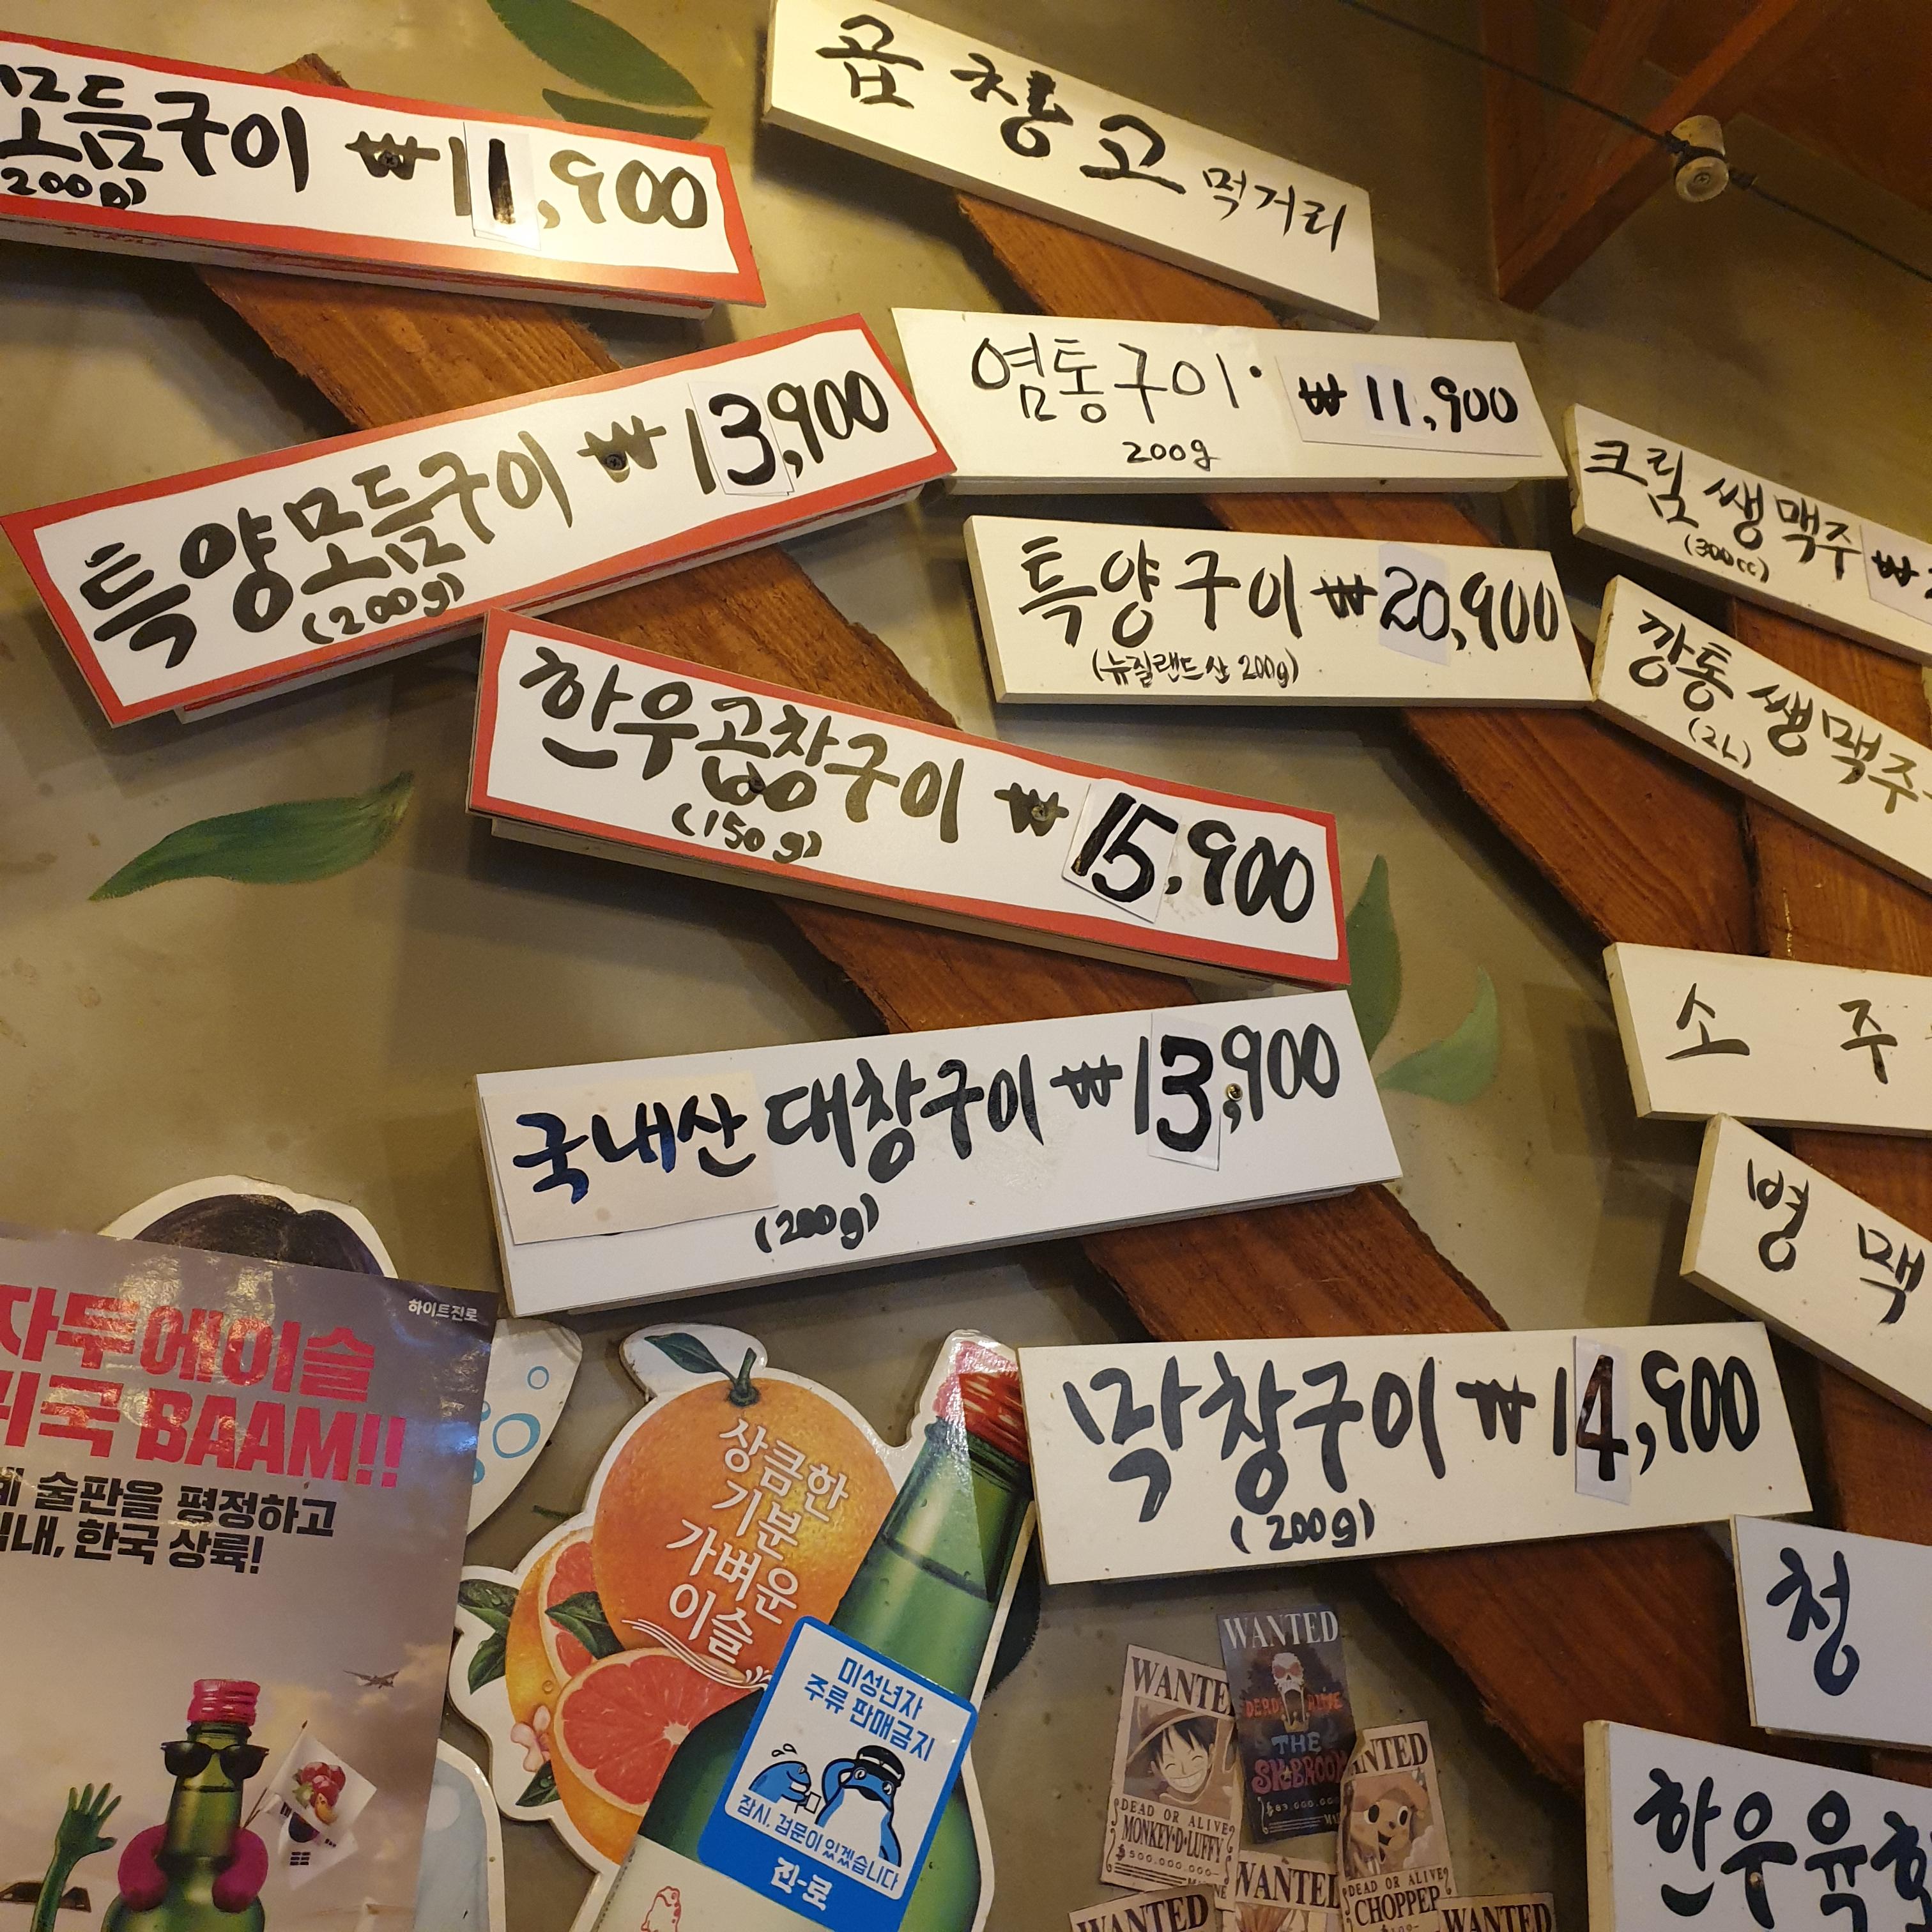 모듬구이 ₩11,900
200g)
특양모듬구이 ₩13,900
(200g)
한우곱창구이 ₩15,900
(150g)
국내산 대창구이 ₩13,900
(200g)
막창구이 ₩14,900
(200g)
곱창고 먹거리
염통구이 ₩11,900
200g
특양구이 ₩20,900
(뉴질랜드산 200g)
크림 쌩맥주 ₩
(300cc)
깡통 쌩맥주
(2L)
소주
병맥
청
한우육
하이트진로
자두에이슬
귀국 BAAM!!
술판을 평정하고
한국 상륙!
상큼한
기분
가벼운
이슬
미성년자
주류 판매금지
잠시, 검문이 있겠습니다
진로
WANTED
DEAD OR ALIVE
THE
WANTE
DEAD OR ALIVE
MONKEY·D·LUFFY
ANTED
DEAD OR ALIVE
CHOPPER
WANTED
WANTED
WANTED